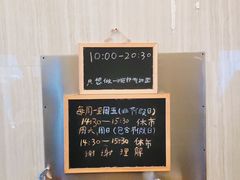 10:00-20:30
只想做一碗好吃的面
每周一至周五(非节假日)
14:30—15:30 休市
周六 周日(包含节假日)
14:30—15:30 休市
谢谢理解